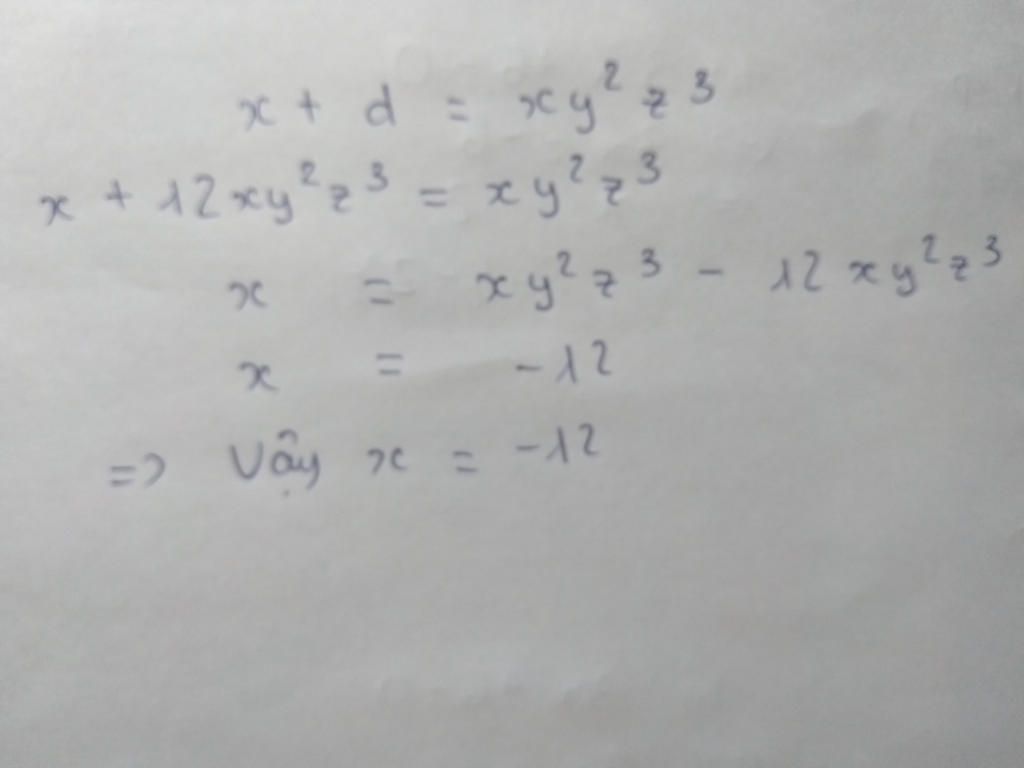 x + d = xy²z³
x + 12xy²z³ = xy²z³
x = xy²z³ - 12xy²z³
x = -12
=> Vậy x = -12